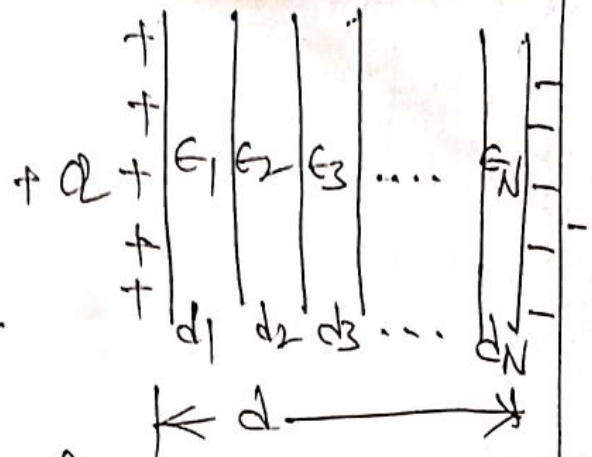 + Q
ε1 ε2 ε3 .... εN
d1 d2 d3 ... dN
d